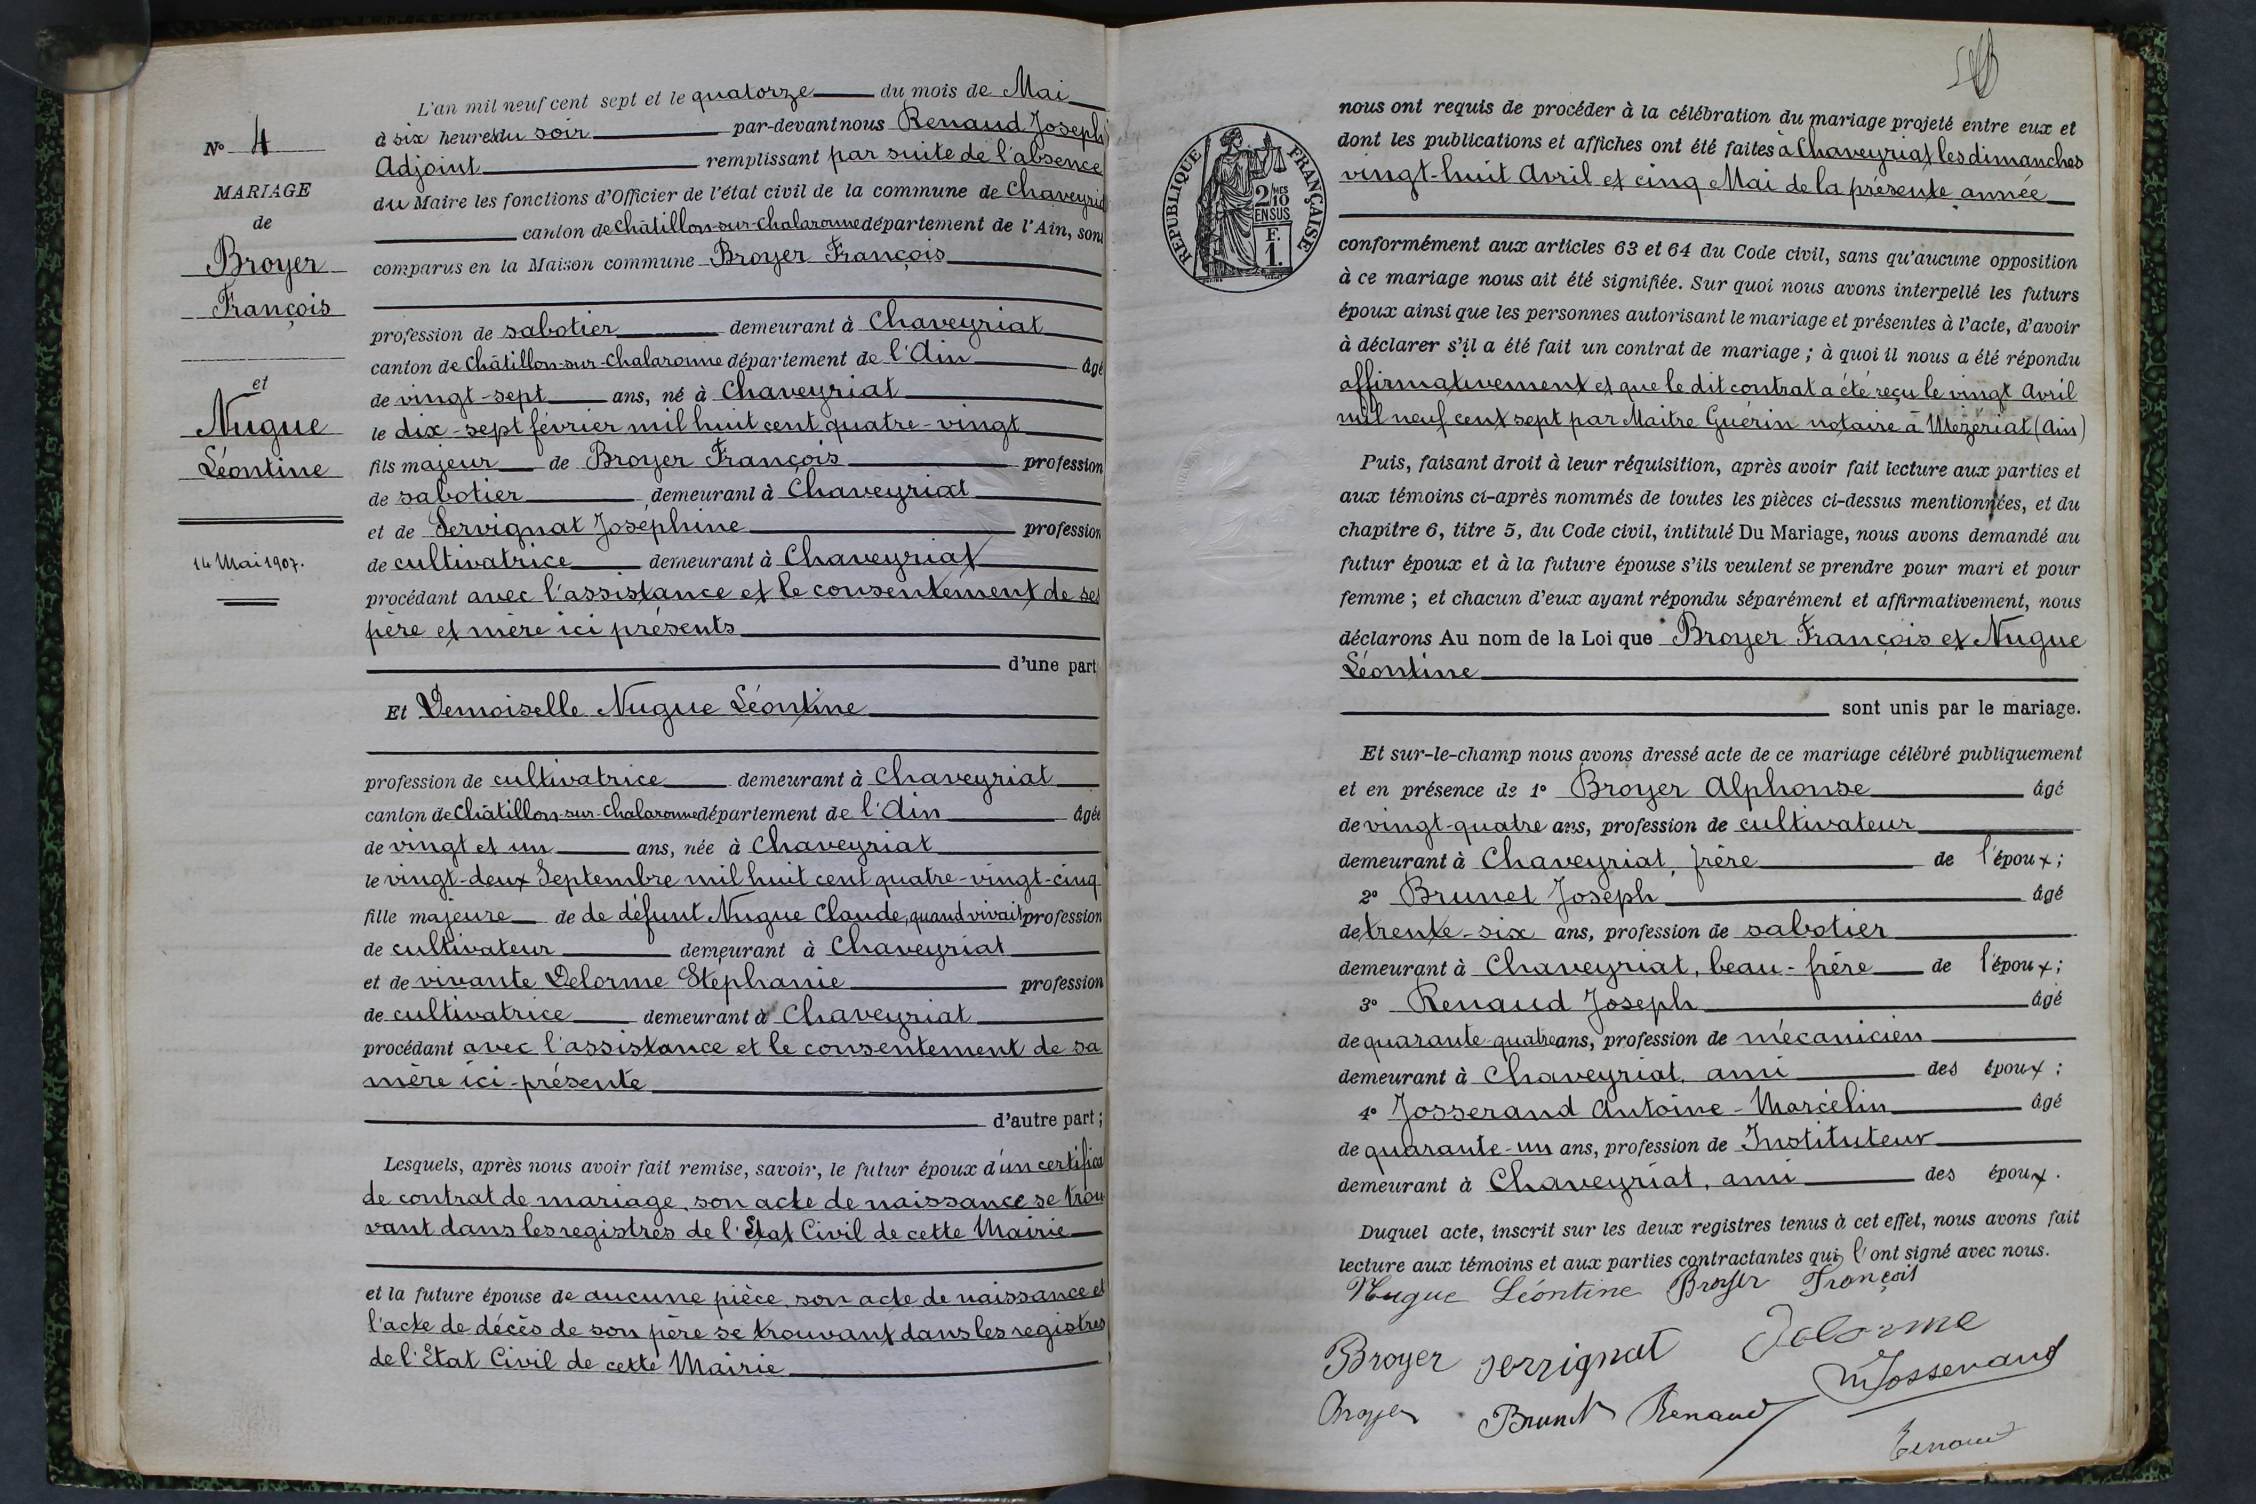 N° 4
MARIAGE
de
Broyer
François
et
Nugue
Léontine
14 Mai 1907.
L'an mil neuf cent sept et le quatorze du mois de Mai
à six heures du soir par-devant nous Renaud Joseph
Adjoint remplissant par suite de l'absence
du Maire les fonctions d'Officier de l'état civil de la commune de Chaveyriat
canton de Châtillon-sur-Chalaronne département de l'Ain, sont
comparus en la Maison commune Broyer François
profession de sabotier demeurant à Chaveyriat
canton de Châtillon-sur-Chalaronne département de l'Ain âgé
de vingt-sept ans, né à Chaveyriat
le dix-sept février mil huit cent quatre-vingt
fils majeur de Broyer François profession
de sabotier demeurant à Chaveyriat
et de Servignat Joséphine profession
de cultivatrice demeurant à Chaveyriat
procédant avec l'assistance et le consentement de ses
père et mère ici présents
d'une part
Et Demoiselle Nugue Léontine
profession de cultivatrice demeurant à Chaveyriat
canton de Châtillon-sur-Chalaronne département de l'Ain âgée
de vingt et un ans, née à Chaveyriat
le vingt-deux Septembre mil huit cent quatre-vingt-cinq
fille majeure de de défunt Nugue Claude, quand vivait profession
de cultivateur demeurant à Chaveyriat
et de vivante Delorme Stéphanie profession
de cultivatrice demeurant à Chaveyriat
procédant avec l'assistance et le consentement de sa
mère ici-présente
d'autre part ;
Lesquels, après nous avoir fait remise, savoir, le futur époux d'un certificat
de contrat de mariage, son acte de naissance se trou
vant dans les registres de l'Etat Civil de cette Mairie
et la future épouse de aucune pièce, son acte de naissance et
l'acte de décès de son père se trouvant dans les registres
de l'Etat Civil de cette Mairie
RÉPUBLIQUE FRANÇAISE
2 MES
10
EN SUS
F.
1.
nous ont requis de procéder à la célébration du mariage projeté entre eux et
dont les publications et affiches ont été faites à Chaveyriat les dimanches
vingt-huit Avril et cinq Mai de la présente année
conformément aux articles 63 et 64 du Code civil, sans qu'aucune opposition
à ce mariage nous ait été signifiée. Sur quoi nous avons interpellé les futurs
époux ainsi que les personnes autorisant le mariage et présentes à l'acte, d'avoir
à déclarer s'il a été fait un contrat de mariage ; à quoi il nous a été répondu
affirmativement et que le dit contrat a été reçu le vingt Avril
mil neuf cent sept par Maitre Guérin notaire à Mézériat (Ain)
Puis, faisant droit à leur réquisition, après avoir fait lecture aux parties et
aux témoins ci-après nommés de toutes les pièces ci-dessus mentionnées, et du
chapitre 6, titre 5, du Code civil, intitulé Du Mariage, nous avons demandé au
futur époux et à la future épouse s'ils veulent se prendre pour mari et pour
femme ; et chacun d'eux ayant répondu séparément et affirmativement, nous
déclarons Au nom de la Loi que Broyer François et Nugue
Léontine
sont unis par le mariage.
Et sur-le-champ nous avons dressé acte de ce mariage célébré publiquement
et en présence de 1° Broyer Alphonse âgé
de vingt-quatre ans, profession de cultivateur
demeurant à Chaveyriat, frère de l'époux ;
2° Brunet Joseph âgé
de trente-six ans, profession de sabotier
demeurant à Chaveyriat, beau-frère de l'époux ;
3° Renaud Joseph âgé
de quarante-quatre ans, profession de mécanicien
demeurant à Chaveyriat, ami des époux ;
4° Josserand Antoine-Marcélin âgé
de quarante-un ans, profession de Instituteur
demeurant à Chaveyriat, ami des époux.
Duquel acte, inscrit sur les deux registres tenus à cet effet, nous avons fait
lecture aux témoins et aux parties contractantes qui l'ont signé avec nous.
Nugue Léontine Broyer François
Broyer servignat Delorme
Josserand
Broyer Brunet Renaud
Renaud